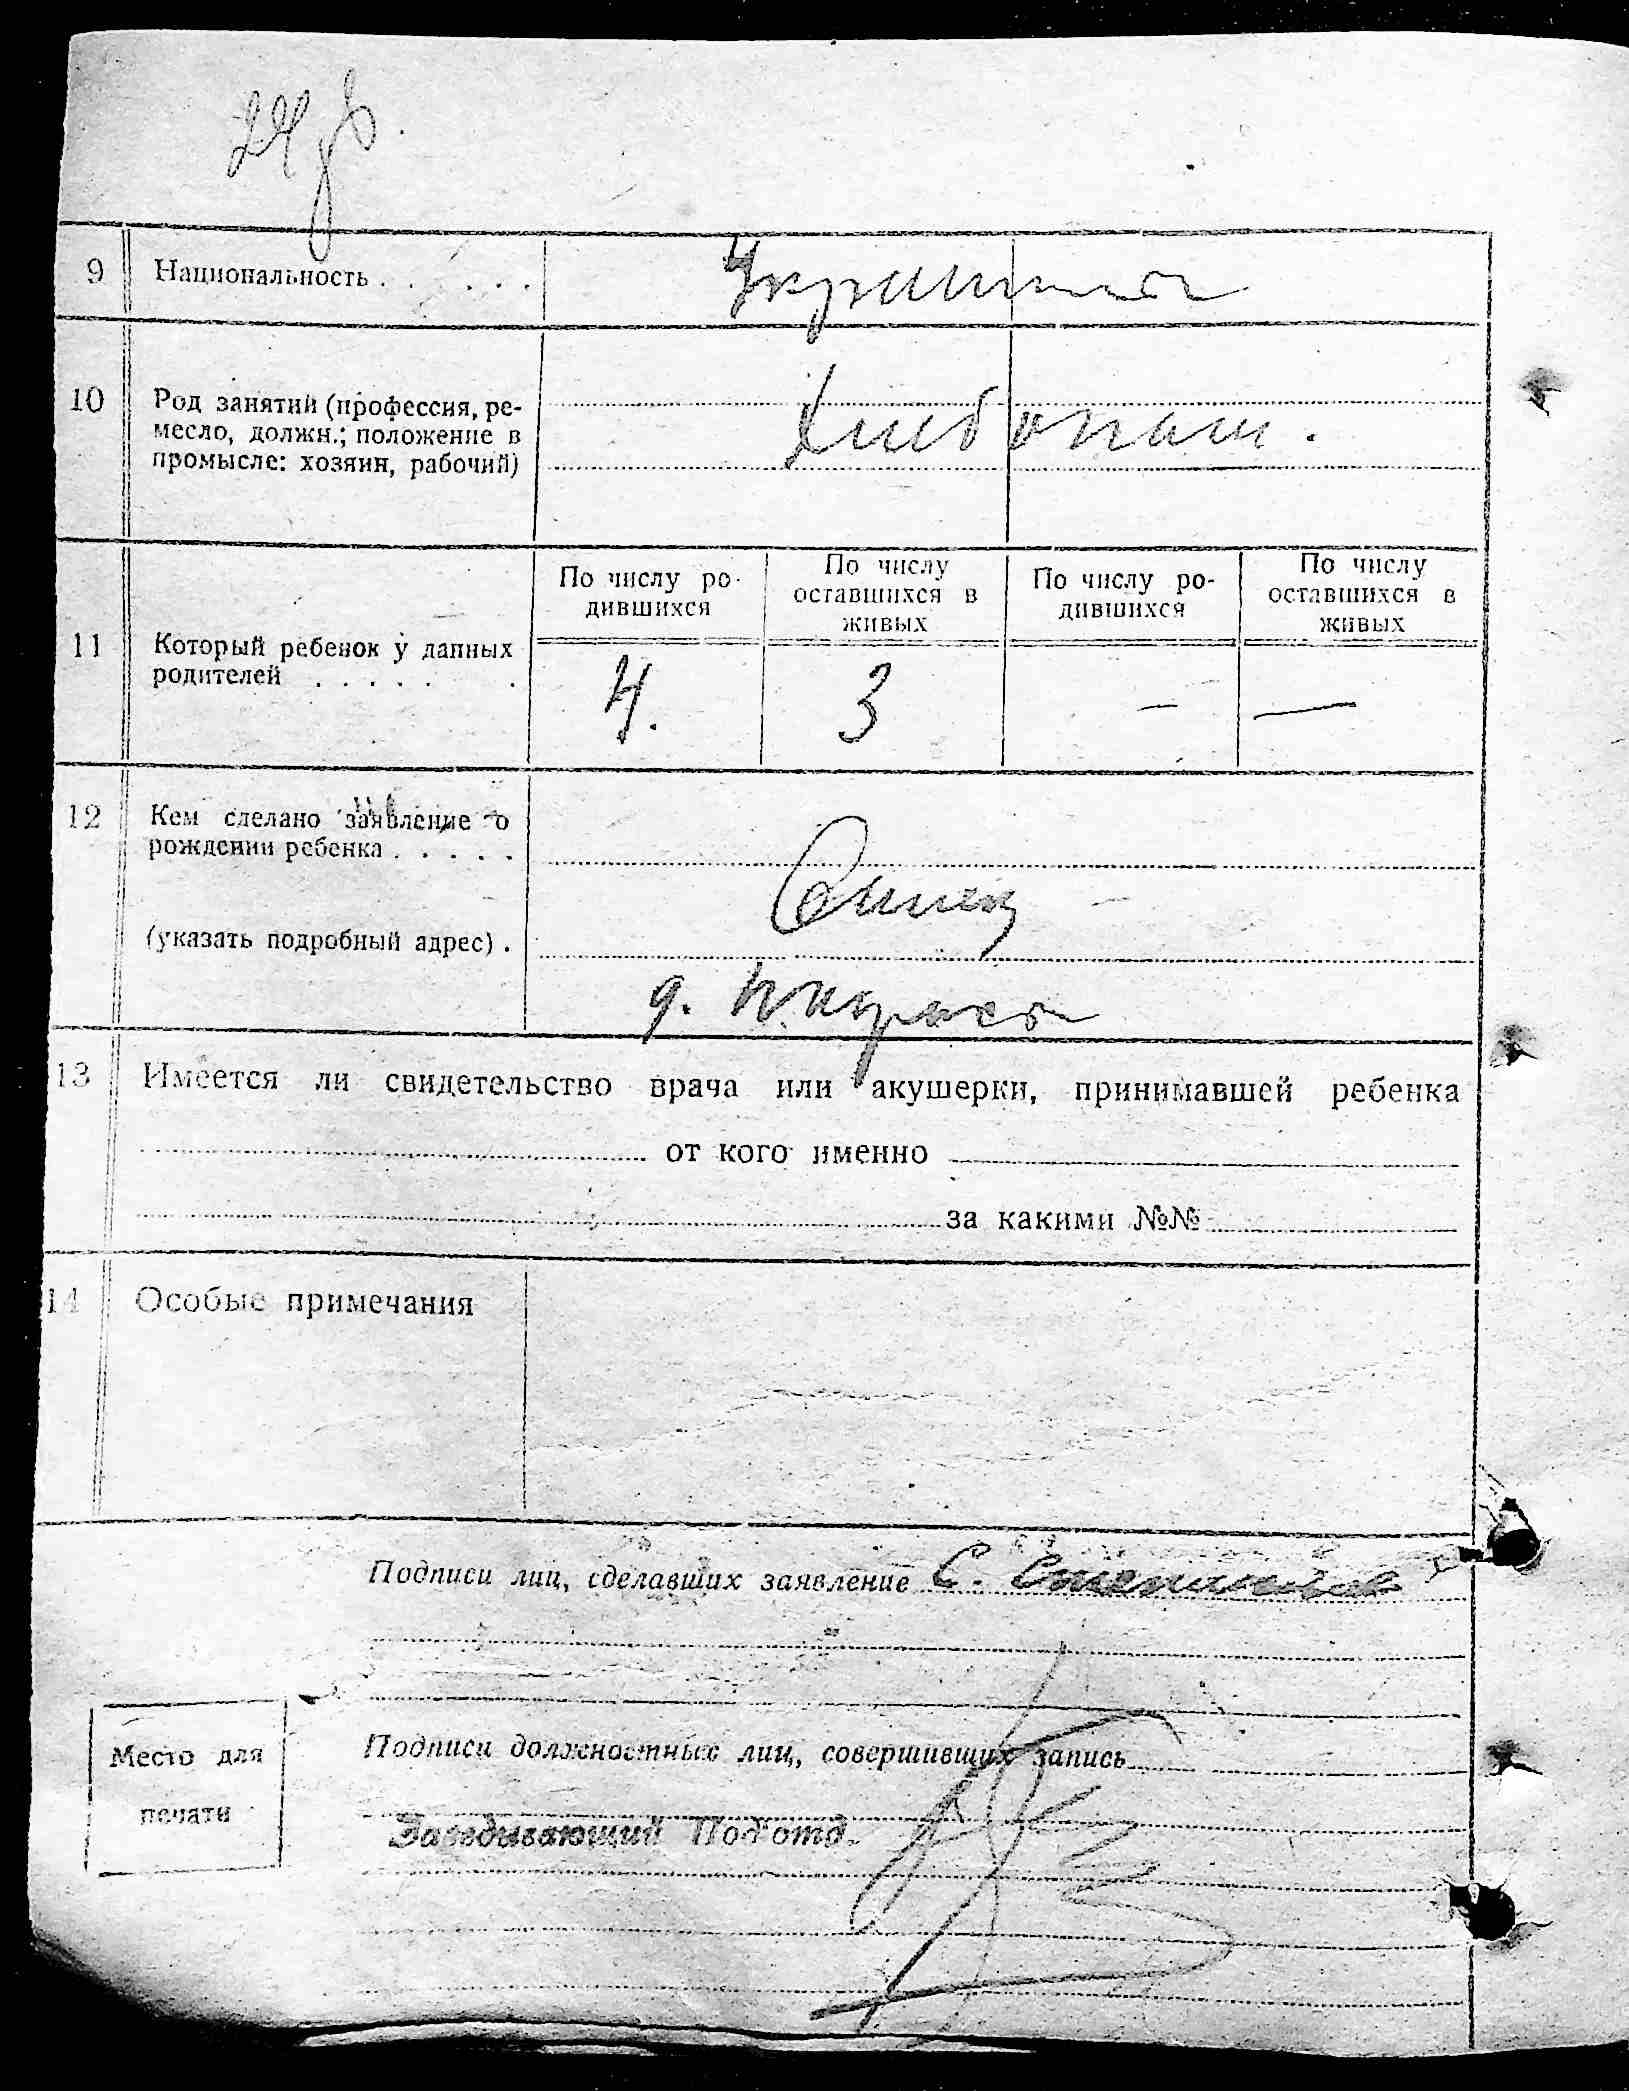 9 Национальность . . . . . .
10 Род занятий (профессия, ре-
месло, должн.; положение в
промысле: хозяин, рабочий)
11 Который ребенок у данных
родителей . . . . . .
По числу ро-
дившихся
По числу
оставшихся в
живых
По числу ро-
дившихся
По числу
оставшихся в
живых
4. 3 — —
12 Кем сделано заявление о
рождении ребенка . . . . .
(указать подробный адрес) .
13 Имеется ли свидетельство врача или акушерки, принимавшей ребенка
от кого именно
за какими №№
14 Особые примечания
Подписи лиц, сделавших заявление С.
Место для
печати
Подписи должностных лиц, совершивших запись
Заведывающий Под'отд.